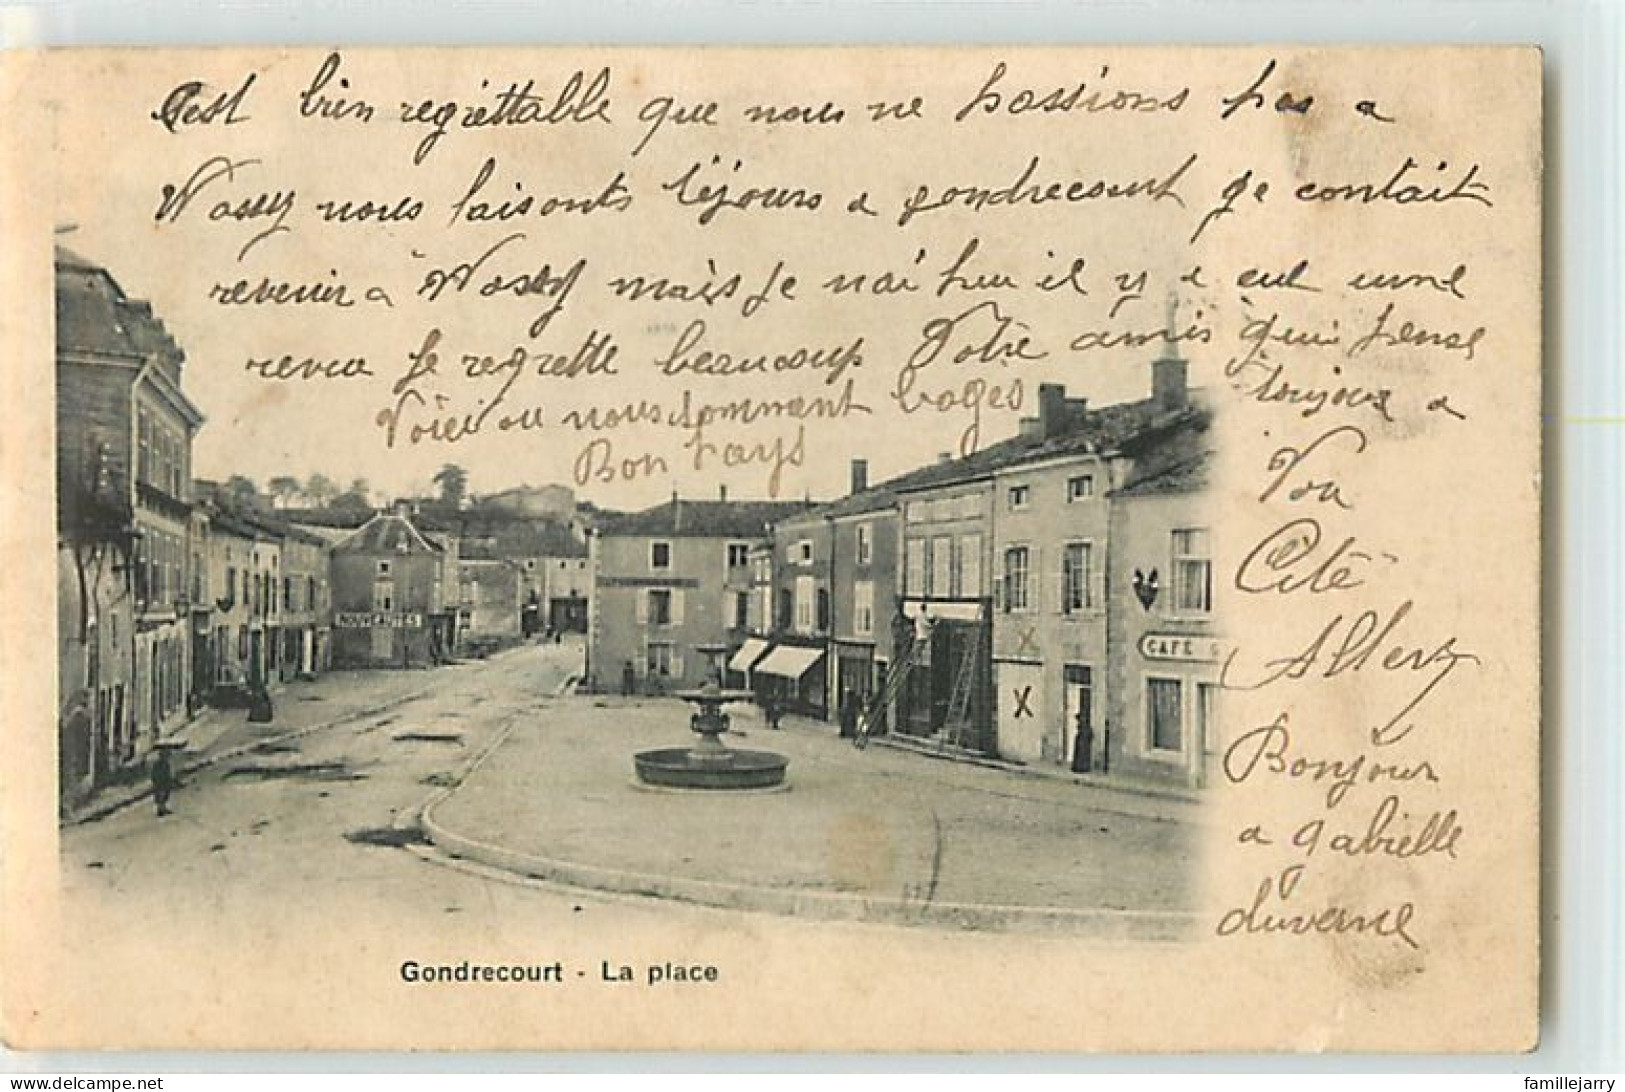 C'est bien regrettable que nous ne passions pas a
Wassy nous faisonts séjours a gondrecourt je contait
revenir a Wassy mais je n'ai peu il y a eut une
revue je regrette beaucoup Votre amis qui pense
toujours a
Voici ou nous sommment logés
Bon pays
Vou
Cité
Albert
Bonjour
a gabielle
duverne
NOUVEAUTÉS
CAFÉ
Gondrecourt - La place
delcampe.net
famillejarry